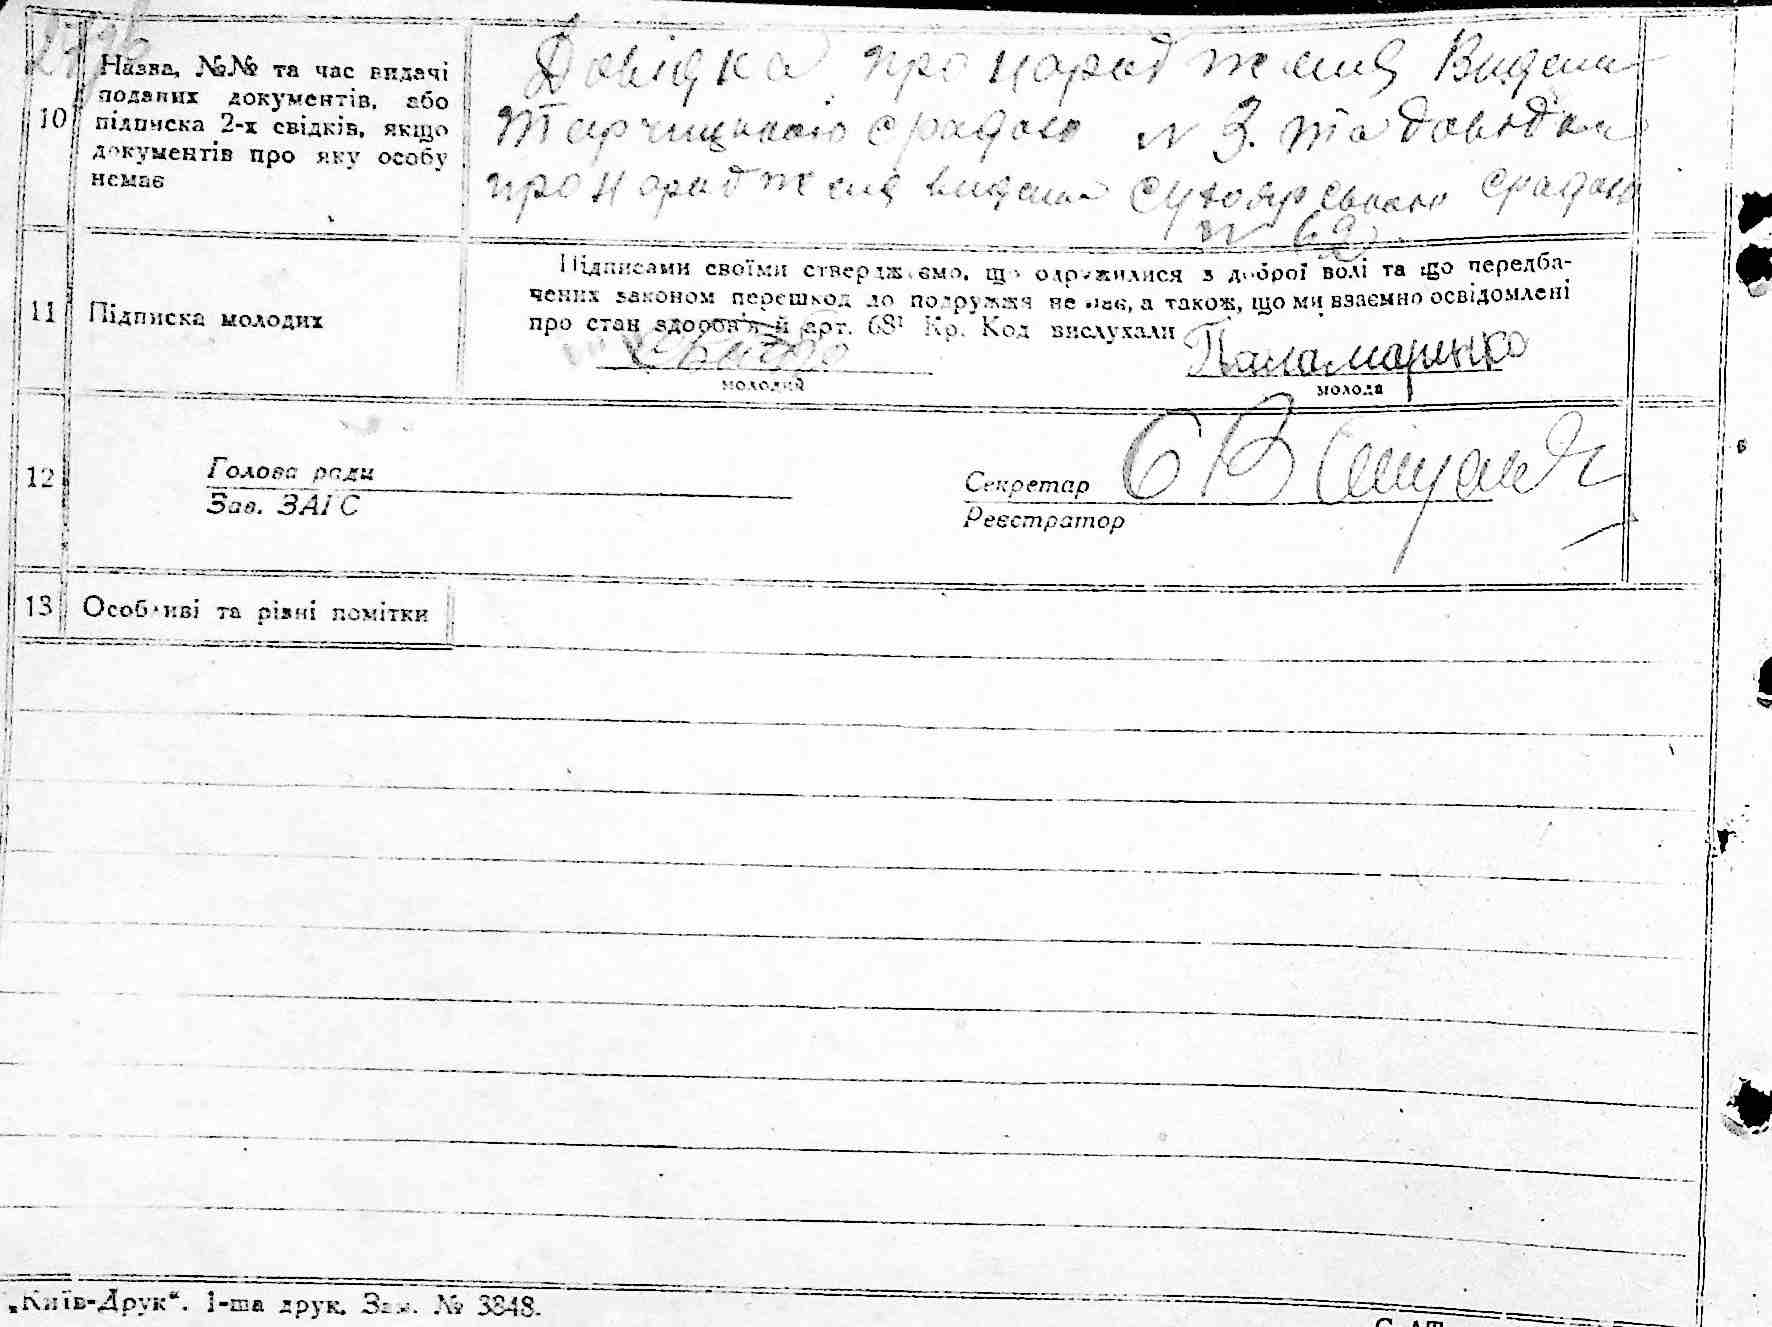 Назва, №№ та час видачі
поданих документів, або
10 підписка 2-х свідків, якщо
документів про яку особу
немає
Довідка про народження Видана
срадою N 3. та довідка
про народження видана срадою
N 62
11 Підписка молодих
Підписами своїми стверджуємо, що одружилися з доброї волі та що передба-
чених законом перешкод до подружжя не має, а також, що ми взаємно освідомлені
про стан здоров'я й арт. 68¹ Кр. Код вислухали
Паламаренко
молодий
молода
12 Голова ради
Зав. ЗАГС
Секретар
Реєстратор
13 Особливі та різні помітки
„Київ-Друк“. 1-ша друк. Зам. № 3848.